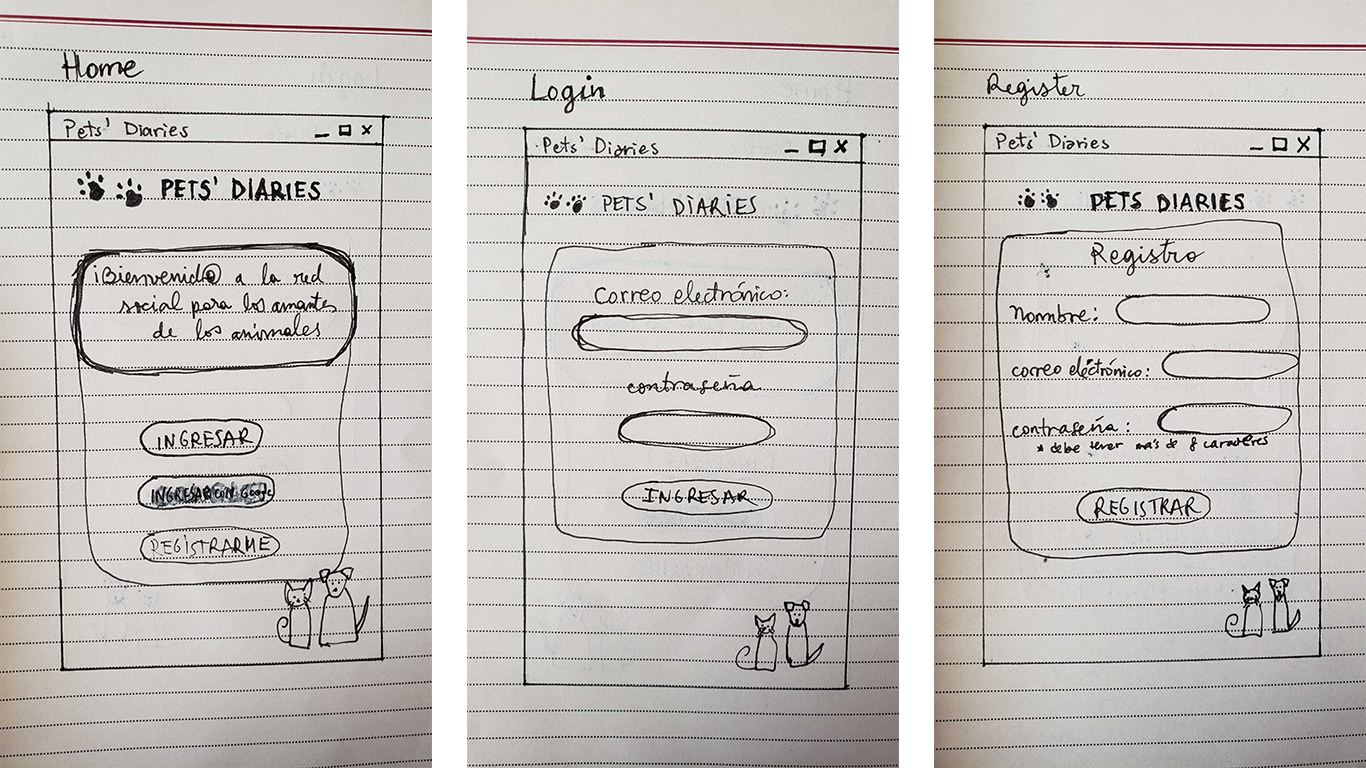 Home
Pets' Diaries
PETS' DIARIES
¡Bienvenid@ a la red
social para los amantes
de los animales
INGRESAR
INGRESAR CON Google
REGISTRARME
Login
Pets' Diaries
PETS' DIARIES
Correo electrónico:
contraseña
INGRESAR
Register
Pets' Diaries
PETS DIARIES
Registro
Nombre:
correo electrónico:
contraseña:
* debe tener más de 8 caracteres
REGISTRAR